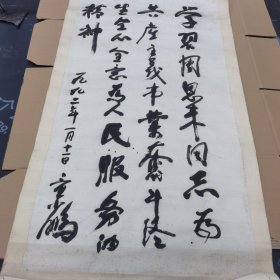 学习周恩来同志为
共产主义事业奋斗终
生全心全意为人民服务的
精神
一九九二年一月十一日 童小鹏